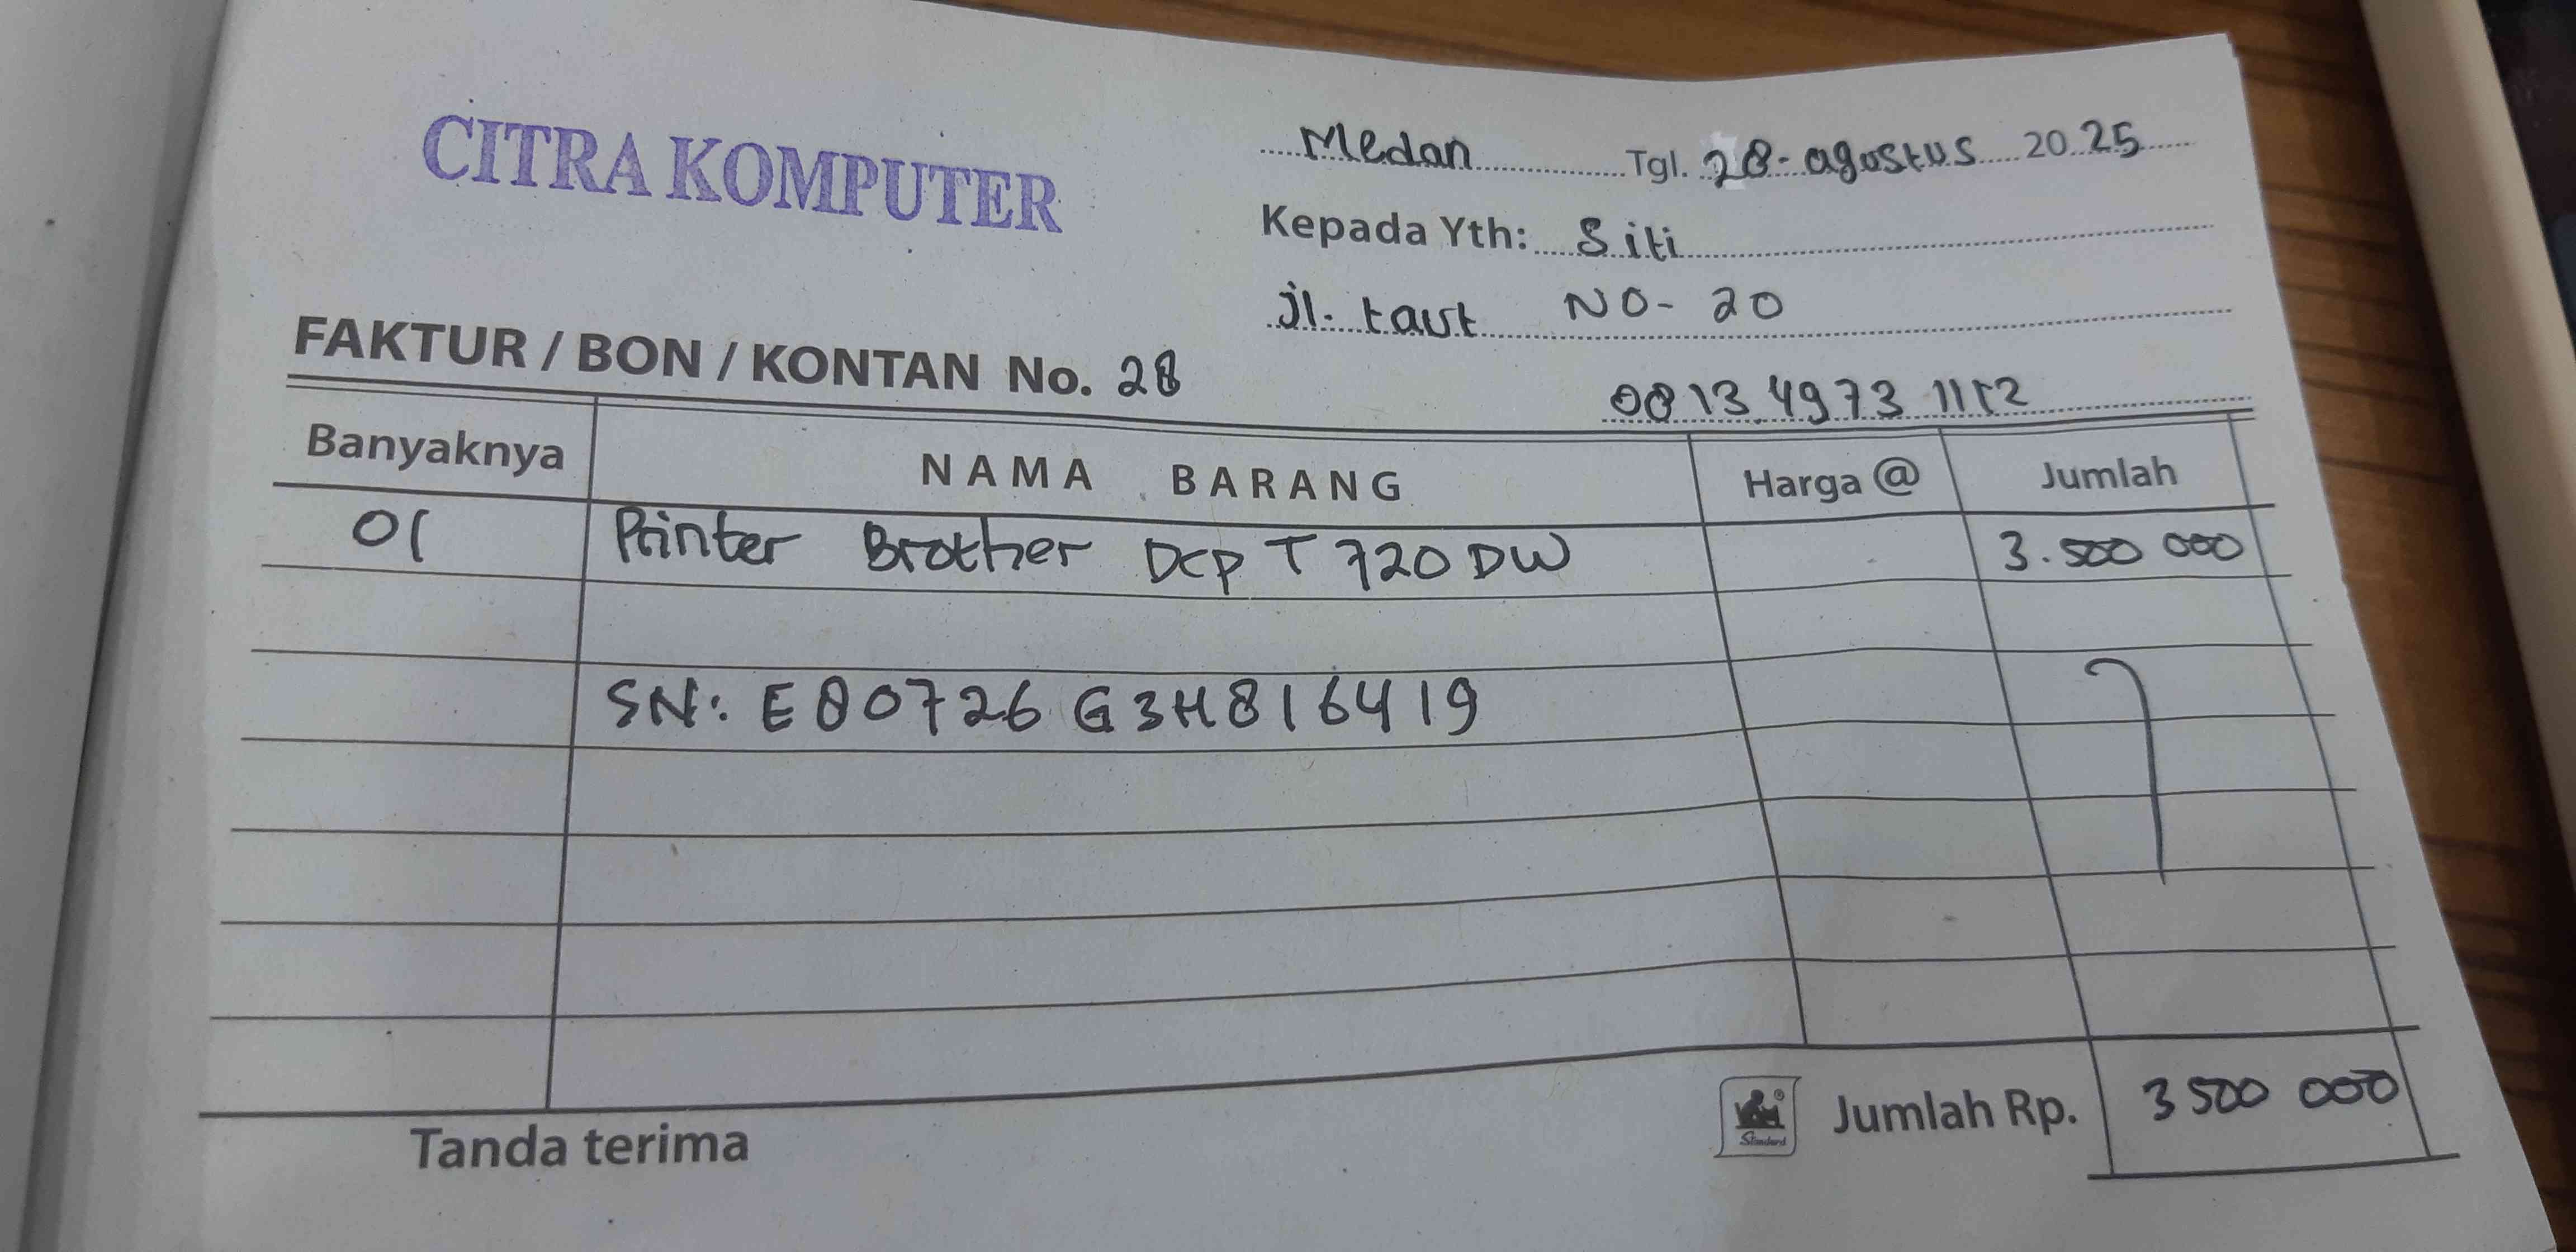 CITRA KOMPUTER
Medan Tgl. 28-agustus 2025
Kepada Yth: Siti
jl. taut NO- 20
FAKTUR / BON / KONTAN No. 28
0813 4973 1112
Banyaknya NAMA BARANG Harga @ Jumlah
01 Printer Brother DCP T 720 DW 3.500 000
SN: E80726G3H816419
Standard Jumlah Rp. 3 500 000
Tanda terima